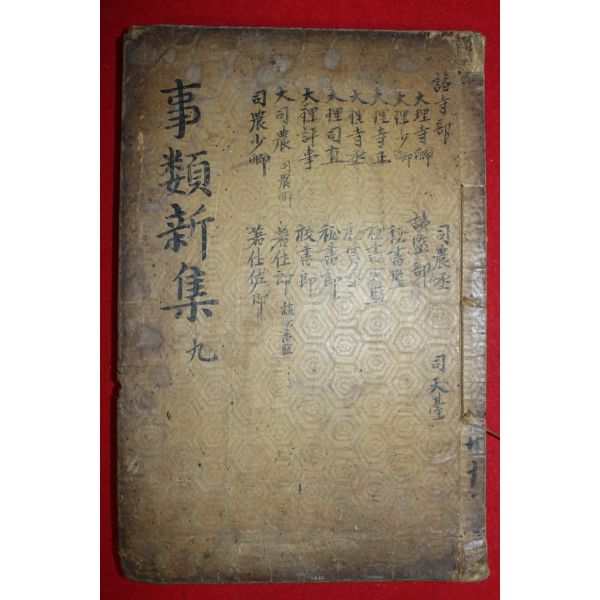 諸寺部
大理寺卿
大理少卿
大理寺正
大理寺丞
大理司直
大理評事
大司農 司農卿
司農少卿
司農丞
諸監部
秘書監
秘書少監
秘書丞
秘書郎
校書郎
著作郎
著作佐郎
司天臺
事類新集 九